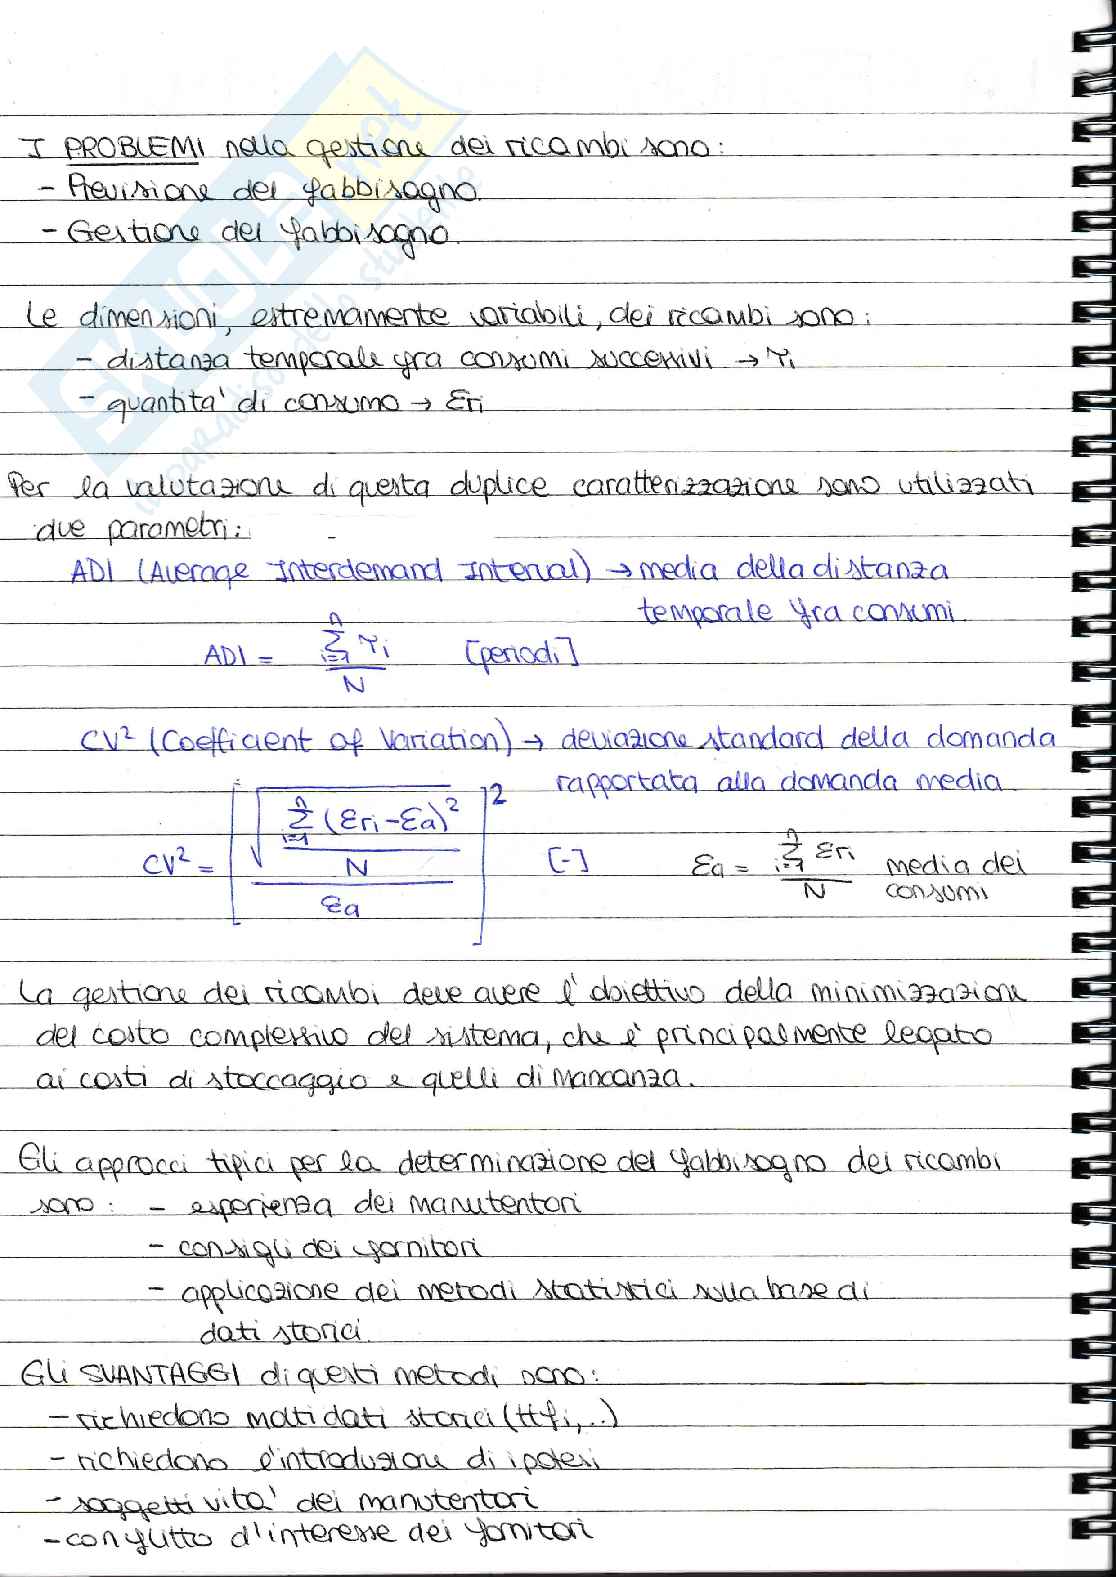 I PROBLEMI nella gestione dei ricambi sono:
- Previsione del fabbisagno.
- Gestione del fabbisogno.
Le dimensioni, estremamente variabili, dei ricambi sono:
- distanza temporale fra consumi successivi → τi
- quantita' di consumo → εri
Per la valutazione di questa duplice caratterizzazione sono utilizzati
due parametri:
ADI (Average Interdemand Interval) → media della distanza
temporale fra consumi.
ADI = (Σ_{i=1}^{n} τi) / N [periodi]
CV² (Coefficient of Variation) → deviazione standard della domanda
rapportata alla domanda media
CV² = [√((Σ_{i=1}^{n} (εri - εa)²) / N) / εa]² [-] εa = (Σ_{i=1}^{n} εri) / N media dei
consumi
La gestione dei ricambi deve avere l'obiettivo della minimizzazione
del costo complessivo del sistema, che e' principalmente legato
ai costi di stoccaggio e quelli di mancanza.
Gli approcci tipici per la determinazione del fabbisogno dei ricambi
sono: - esperienza dei manutentori
- consigli dei fornitori
- applicazione dei metodi statistici sulla base di
dati storici.
Gli SVANTAGGI di questi metodi sono:
- richiedono molti dati storici (ttfi,..)
- richiedono l'introduzione di ipotesi
- soggettivita' dei manutentori
- conflitto d'interesse dei fornitori
SKUOLA.net
il paradiso dello studente